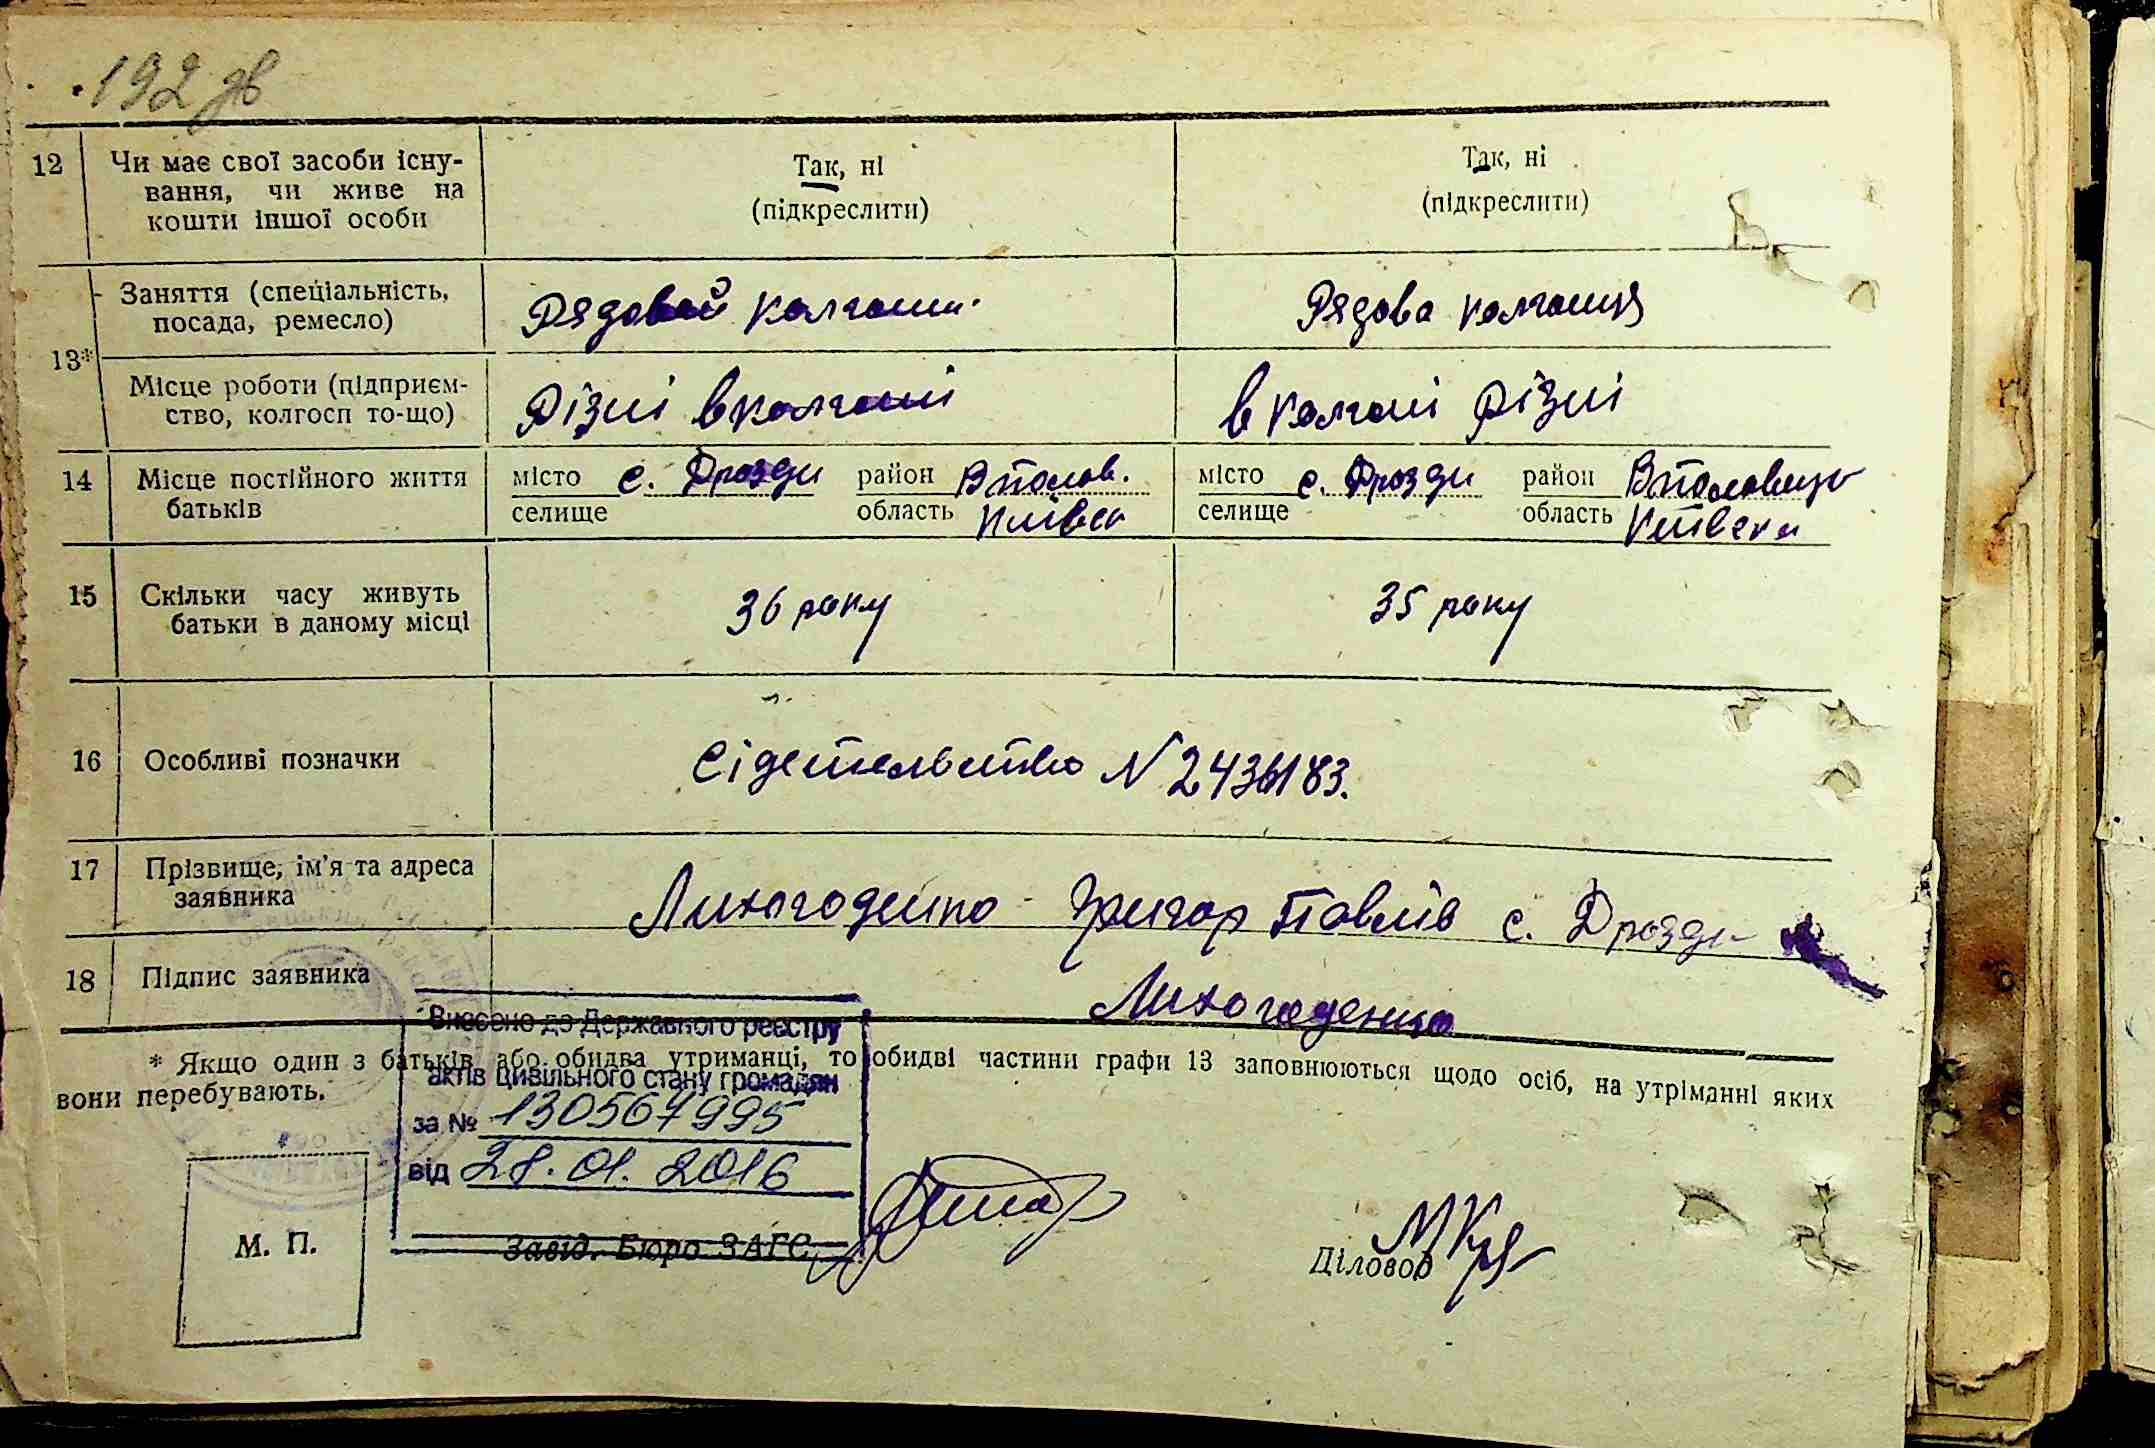 192 зв
12 Чи має свої засоби існу- Так, ні Так, ні
вання, чи живе на (підкреслити) (підкреслити)
кошти іншої особи
13* Заняття (спеціальність, Рядовой колгосп. Рядова колгоспу
посада, ремесло)
Місце роботи (підприєм- Різні в колгоспі в колгоспі Різні
ство, колгосп то-що)
14 Місце постійного життя місто с. Дрозди район Вполов. місто с. Дрозди район Вполовецьк
батьків селище область Київськ селище область Київськ
15 Скільки часу живуть 36 року 35 року
батьки в даному місці
16 Особливі позначки Сідетельство N
17 Прізвище, ім'я та адреса Лихогоденко Григор Павлів с. Дрозди
заявника
18 Підпис заявника Лихогоденко
Внесено до Державного реєстру
* Якщо один з батьків або обидва утриманці, то обидві частини графи 13 заповнюються щодо осіб, на утріманні яких
актів цивільного стану громадян
вони перебувають.
за № 130567995
від 28.01.2016
М. П.
Завід. Бюро ЗАГС
Діловод